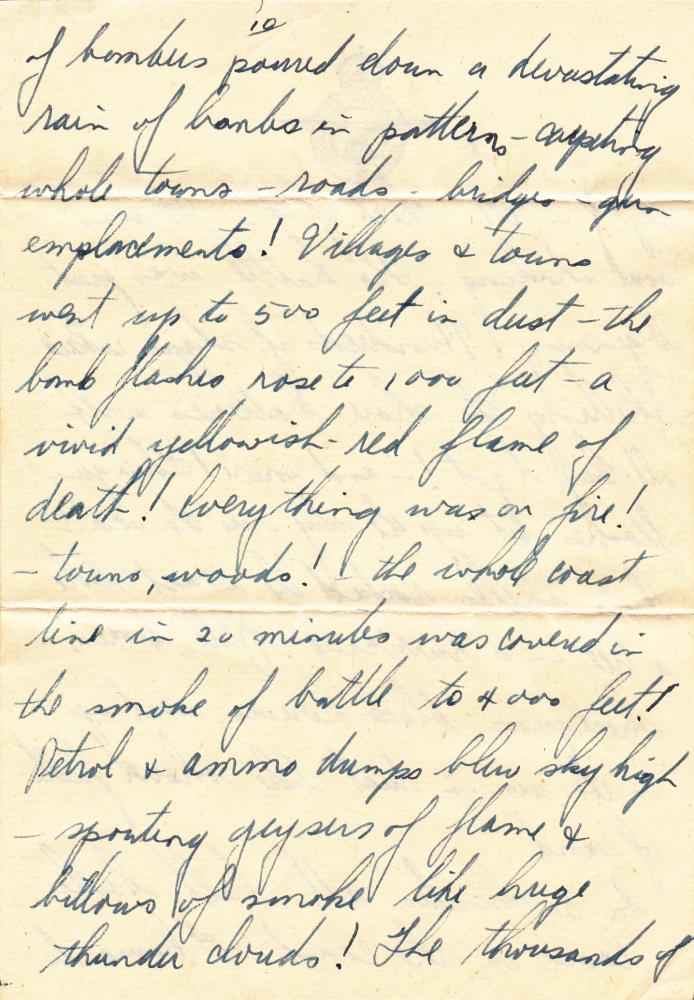 10
of bombers poured down a devastating
rain of bombs in patterns - carpeting
whole towns - roads - bridges - gun
emplacements! Villages & towns
went up to 500 feet in dust - the
bomb flashes rose to 1000 feet - a
vivid yellowish - red flame of
death! Everything was on fire!
- towns, woods! - the whole coast
line in 20 minutes was covered in
the smoke of battle to 4000 feet!
Petrol & ammo dumps blew sky high
- spouting geysers of flame &
billows of smoke like huge
thunder clouds! The thousands of